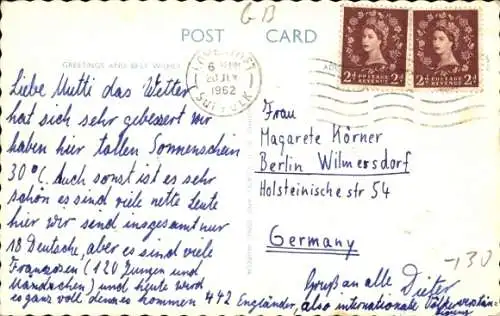 GB
POST CARD
GREETINGS AND BEST WISHES
LOWESTOFT
20 JLY
1962
SUFFOLK
2d POSTAGE REVENUE 2d
2d POSTAGE REVENUE 2d
Liebe Mutti das Wetter
hat sich sehr gebessert wir
haben hier tollen Sonnenschein
30°C. Auch sonst ist es sehr
schön es sind viele nette Leute
hier wir sind insgesamt nur
18 Deutsche, aber es sind viele
Franzosen (120 Jungen und
Mändchen) und heute wird
es ganz voll denn es kommen 442 Engländer, also internationale
Gruß an alle Dieter
Frau
Magarete Körner
Berlin Wilmersdorf
Holsteinische str 54
Germany
-130